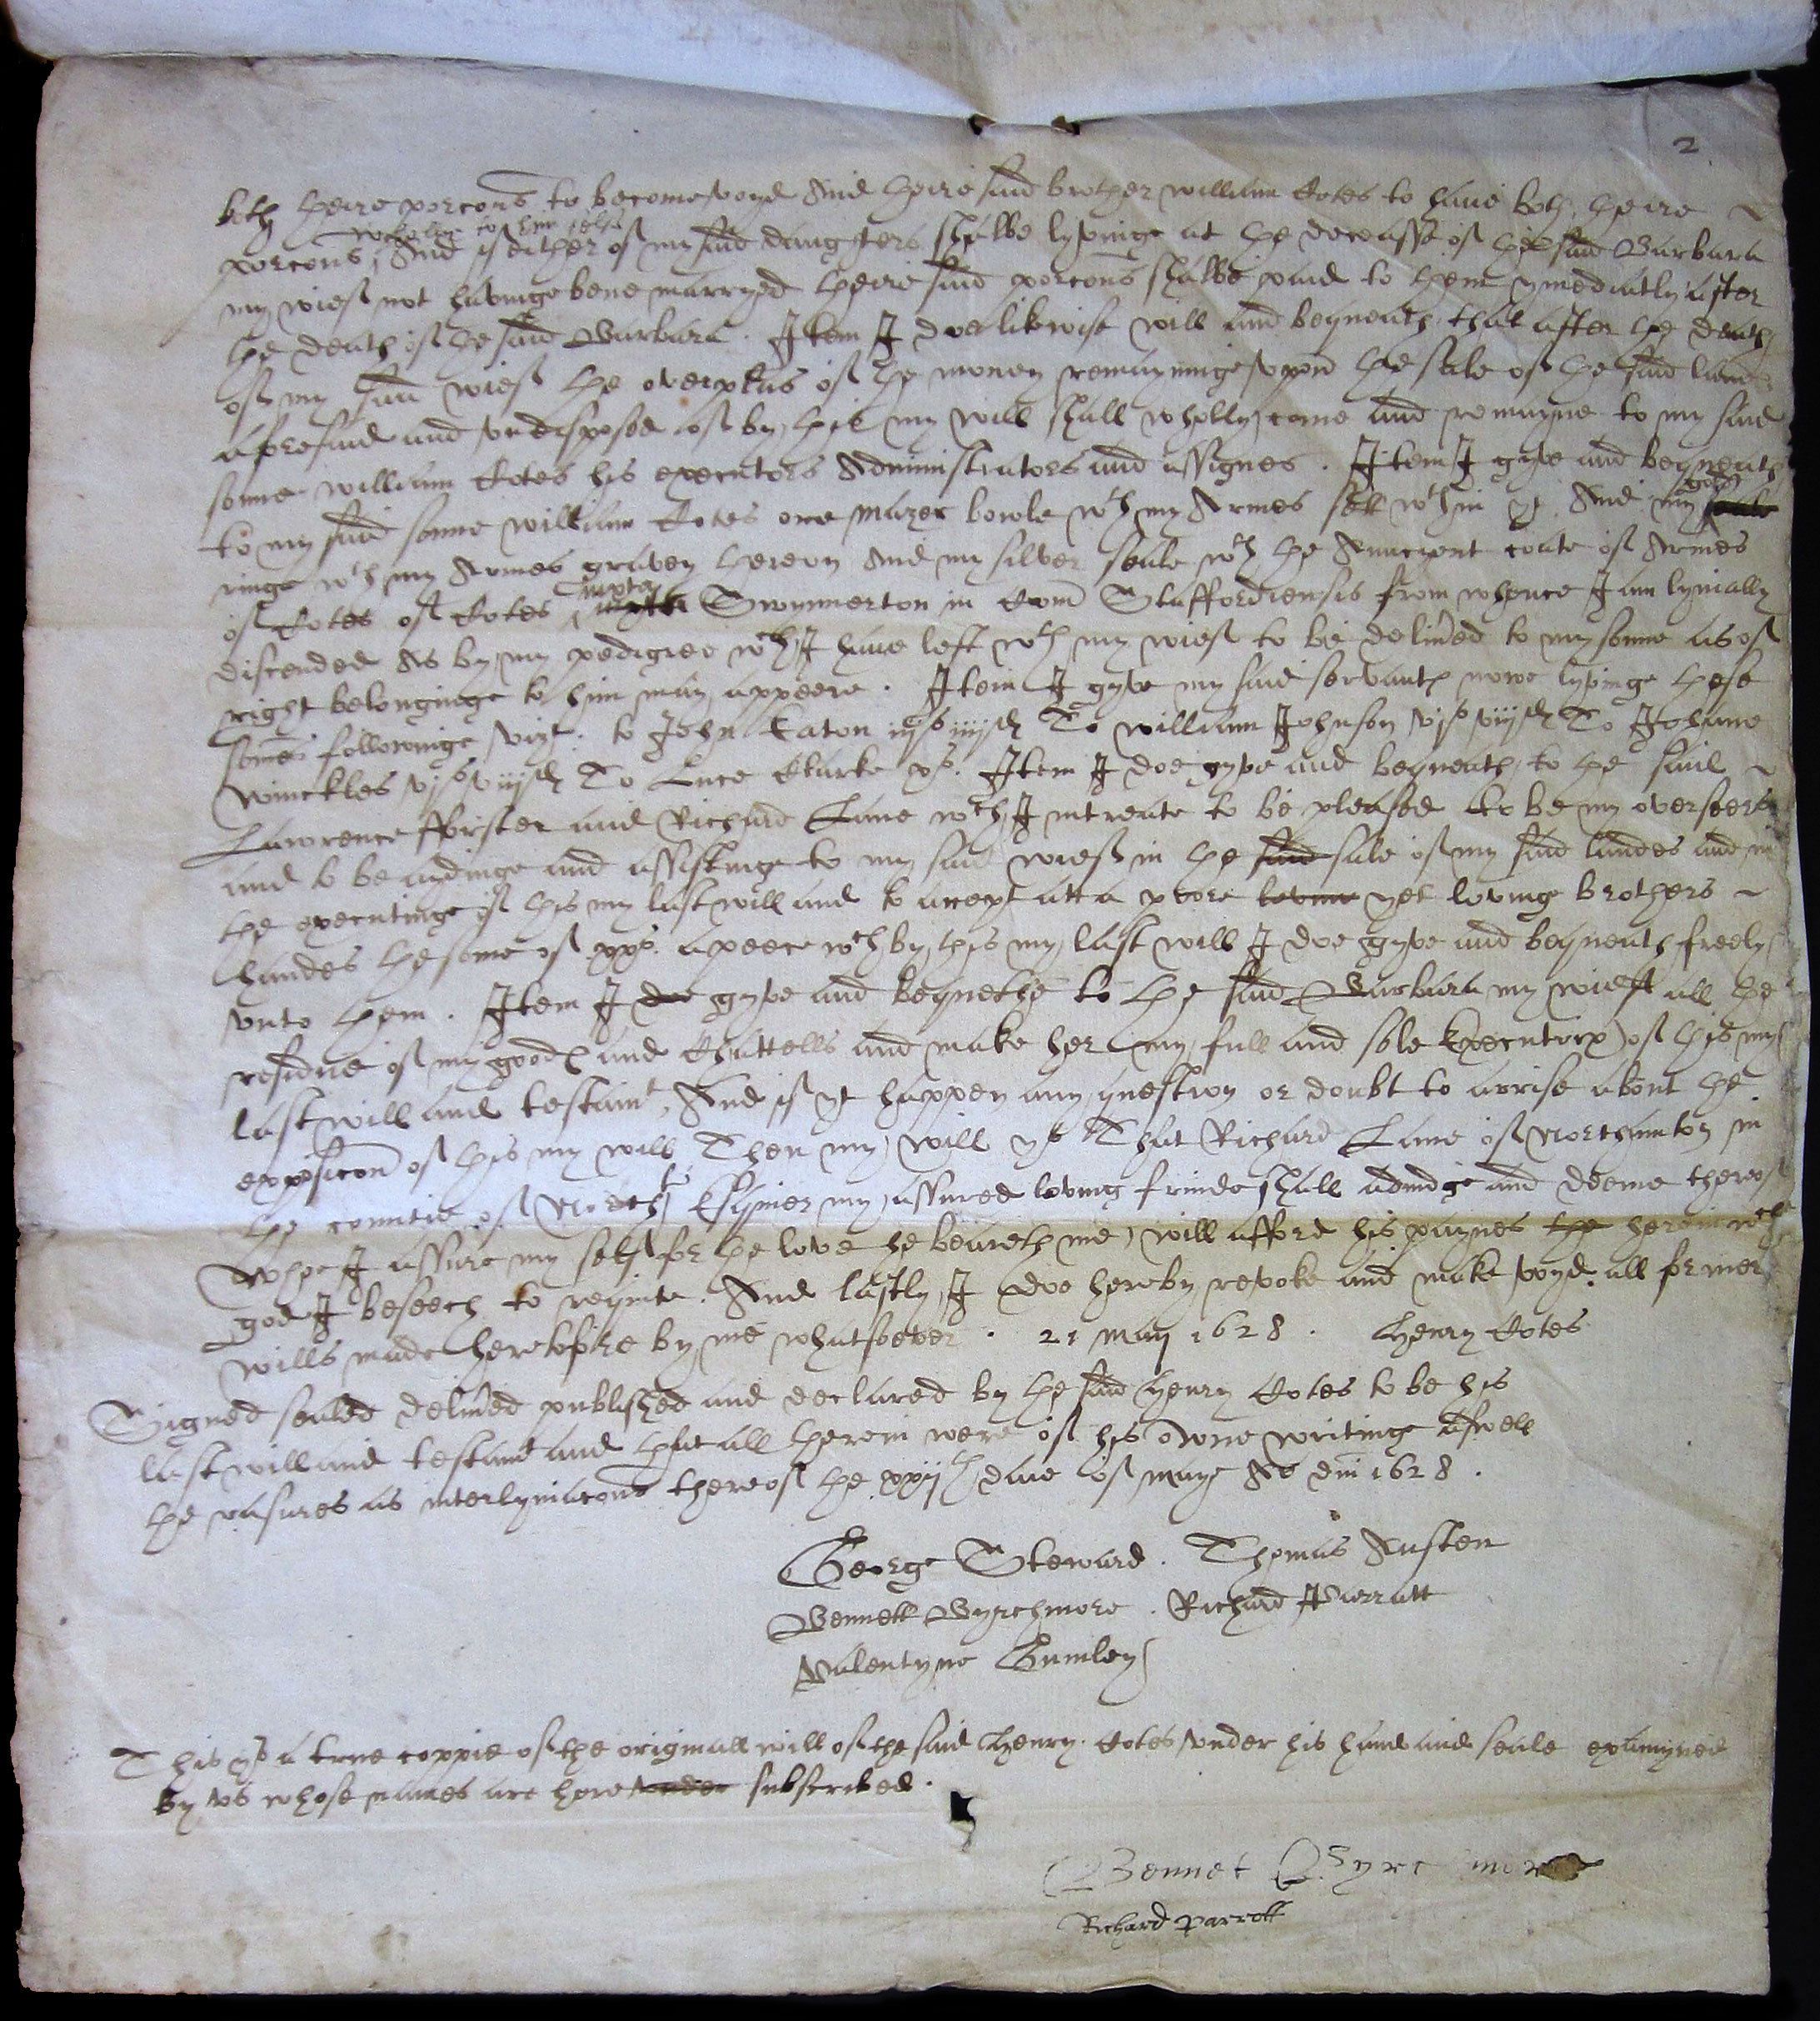 2
both theire porcons to become voyd And theire said brother william Cotes to have both theire
wholye to him selfe
porcons, And if either of my said daughters shalbe lyvinge at the deceasse of the said Barbara
my wief not havinge bene marryed theire said porcons shalbe paid to them ymediatly after
the death of the said Barbara. Item I doe likewise will and bequeath that after the death
of my said wief the overplus of the money remayninge vpon the sale of the said landes
aforesaid and vndisposed of by this my will shall wholly come and remayne to my said
sonne william Cotes his executors Administrators and assignes. Item I gyve and bequeath
to my said sonne william Cotes one mazer bowle wth my Armes sett wthin yt. And my seale
gold
ringe wth my Armes graven thereon And my silver seale wth the Auncyent coate of Armes
of Cotes of Cotes iuxta Swynnerton in Com Staffordiensis from whence I am lynially
discended As by my pedigree wch I have left wth my wief to be delived to my sonne as of
right belonginge to him may appeere. Item I gyve my said servantes nowe lyvinge these
somes followinge vizt. to John Eaton iijs iiijd To william Johnson vjs viijd To Johane
Winckles vjs viijd To Luce Clarke xs. Item I doe gyve and bequeath to the said
Lawrence fforster and Richard Lane wch I intreate to be pleased to be my overseers
and to be aydinge and assistinge to my said wief in the said sale of my said landes and in
the executinge of this my last will and to accept att a poore lovinge yet loving brothers
handes the some of xxs. apeece wch by this my last will I doe gyve and bequeath freely
vnto them. Item I doe gyve and bequethe to the said Barbara my wieff all the
residue of my goodes and Chattells and make her my full and sole Executrix of this my
last will and testamt, And if yt happen any question or doubt to arrise about the
exposicon of this my will Then my will ys That Richard Lane of Northamton in
the countie of North Esquier my assured loving frinde shall adiudge and deeme thereof
whoe I assure my self for the love he beareth me, will afford his paynes the herein wch
god I beseech to requite. And lastly I doe hereby revoke and make voyd all former
wills made heretofore by me whatsoever. 21 May 1628. Henry Cotes
Signed sealed delived published and declared by the said Henry Cotes to be his
last will and testamt and that all therein were of his owne writinge aswell
the rasures as interlyniacons thereof the xxijth daie of maye Ao dni 1628.
George Steward. Thomas Austen
Bennett Byrchmore. Richard Parratt
Valentyne Gumley
This ys a true coppie of the originall will of the said Henry Cotes vnder his hand and seale examyned
by vs whose names are here vnder subscribed.
Bennet Byrchmore
Richard Parrott